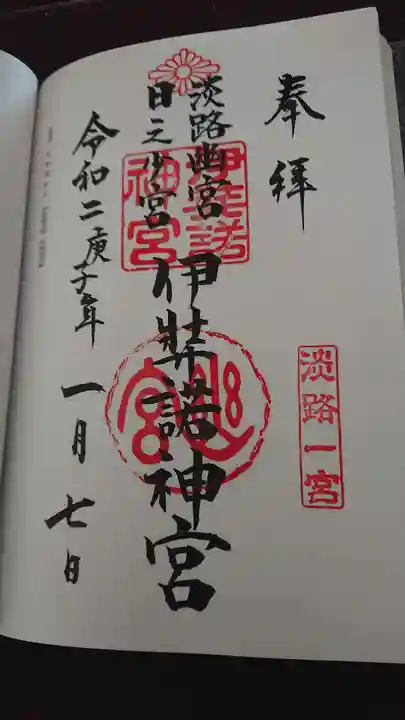 奉拝
淡路一宮
淡路幽宮
日之少宮
伊弉諾神宮
伊弉諾
神宮
幽宮
令和二庚子年
一月七日